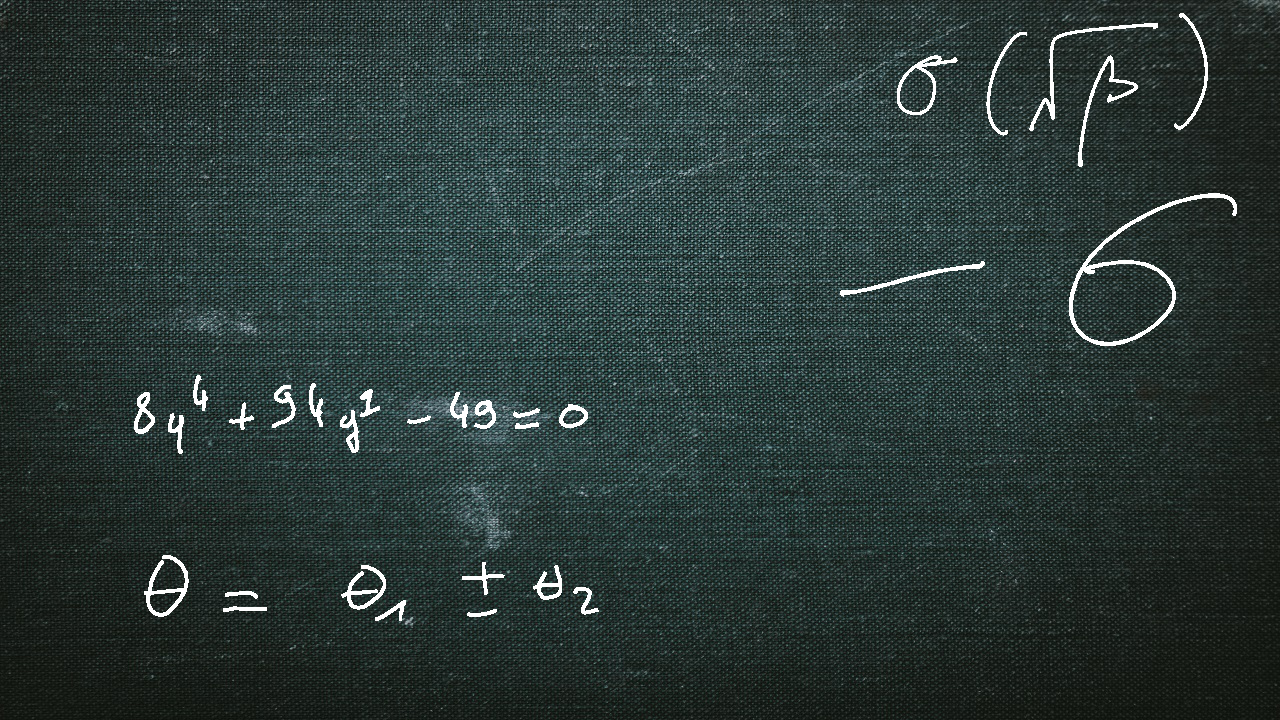 σ(√β)
— 6
8y⁴ + 94y² - 49 = 0
θ = θ₁ ± θ₂